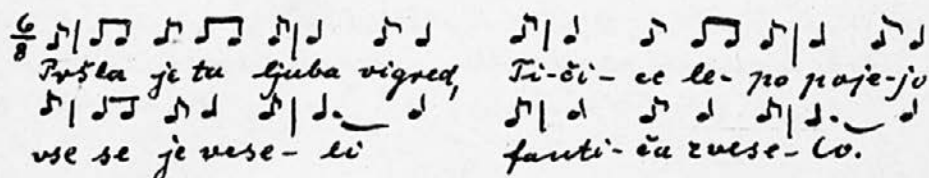 6/8
Pršla je tu ljuba vigred, Ti-či-ce le-po poje-jo
vse se je vese-li fanti-ča zvese-lo.